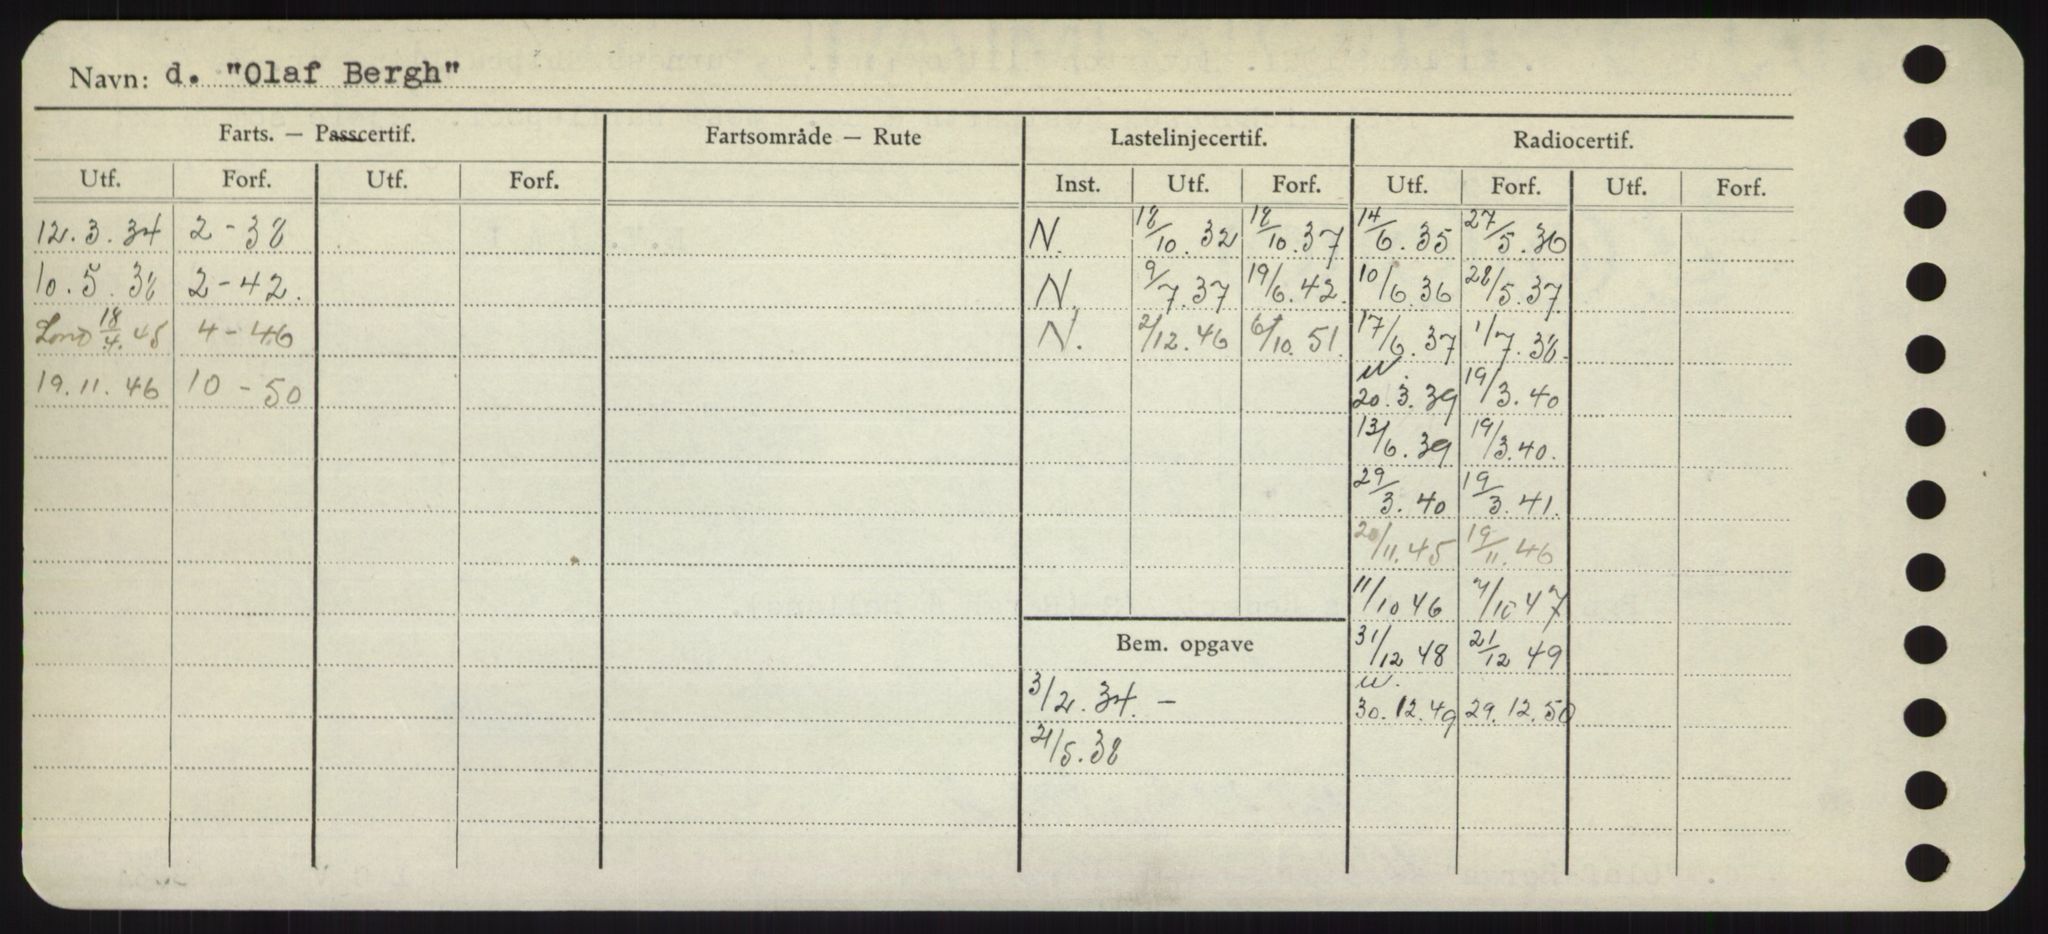 Navn: d. "Olaf Bergh"
Farts. — Passcertif. Fartsområde — Rute Lastelinjecertif. Radiocertif.
Utf. Forf. Utf. Forf. Inst. Utf. Forf. Utf. Forf. Utf. Forf.
12.3.34 2-38 N. 18/10.32 18/10.37 14/6.35 27/5.36
10.5.38 2-42. N. 9/7.37 19/6.42. 10/6.36 28/5.37
Lond 18/4.45 4-46 N. 2/12.46 6/10.51. 17/6.37 1/7.38.
19.11.46 10-50 w. 20.3.39 19/3.40
13/6.39 19/3.40.
29/3.40 19/3.41.
20/11.45 19/11.46
11/10 46 /10 47
Bem. opgave 31/12 48 21/12 49
3/2.34. — w. 30.12.49 29.12.50
21/5.38